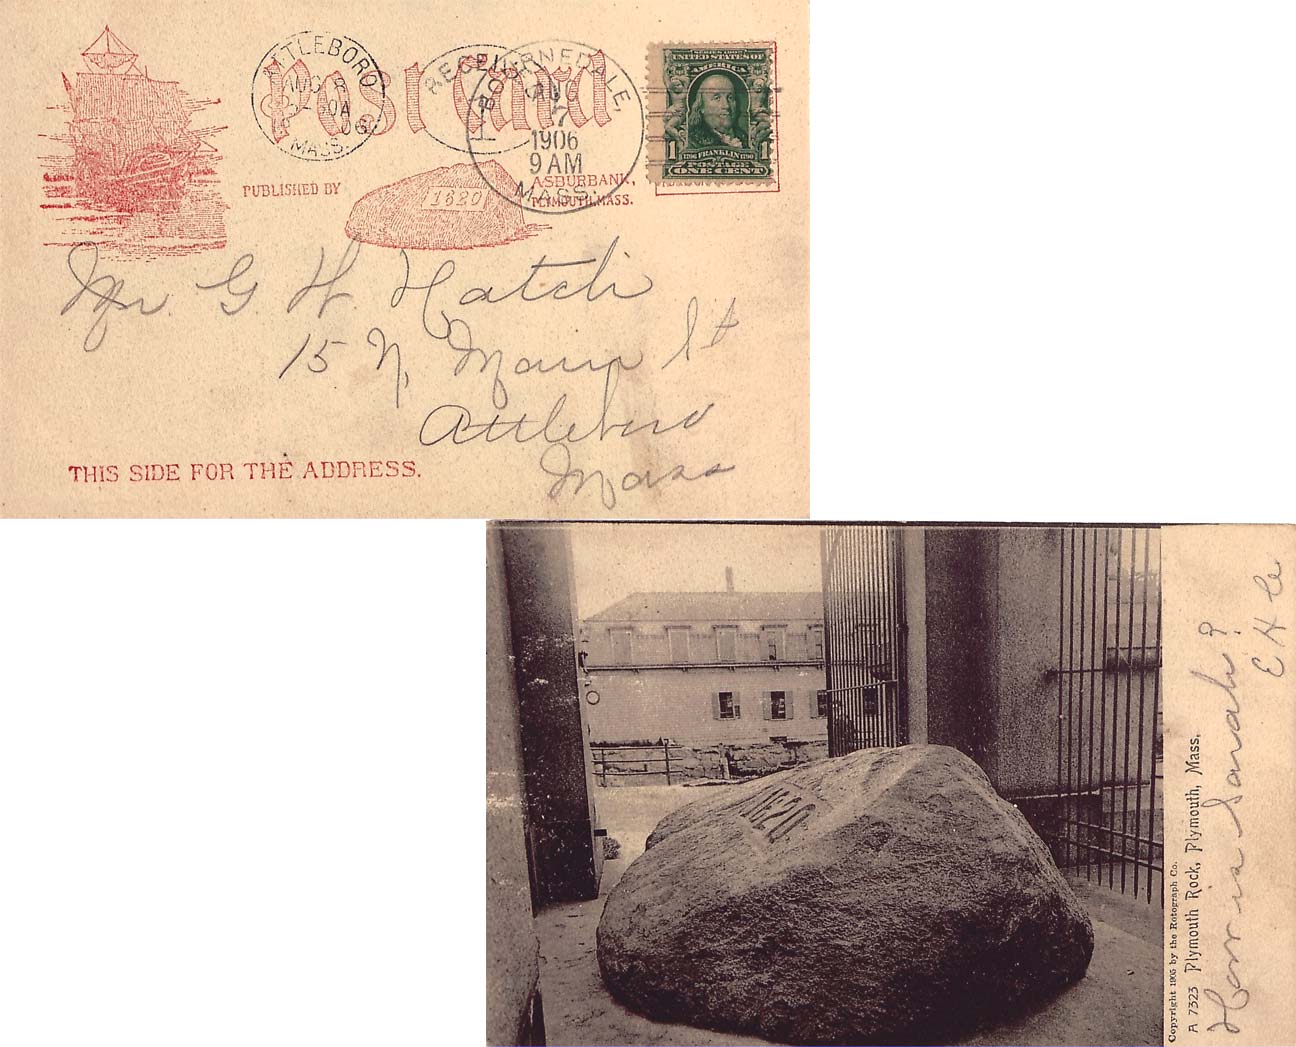 Post Card
ATTLEBORO
AUG 8
06
MASS.
RECEIVED
BOURNEDALE,
AUG
7
1906
9 AM
MASS.
SERIES 1902
UNITED STATES OF
AMERICA
1 1706 FRANKLIN 1790 1
POSTAGE
ONE CENT
PUBLISHED BY
1620
A.S. BURBANK,
PLYMOUTH, MASS.
Mr. G. H. Hatch
15 N, Main St
Attleboro
Mass
THIS SIDE FOR THE ADDRESS.
1620
Copyright 1905 by the Rotograph Co.
A 7323 Plymouth Rock, Plymouth, Mass.
How is Sarah?